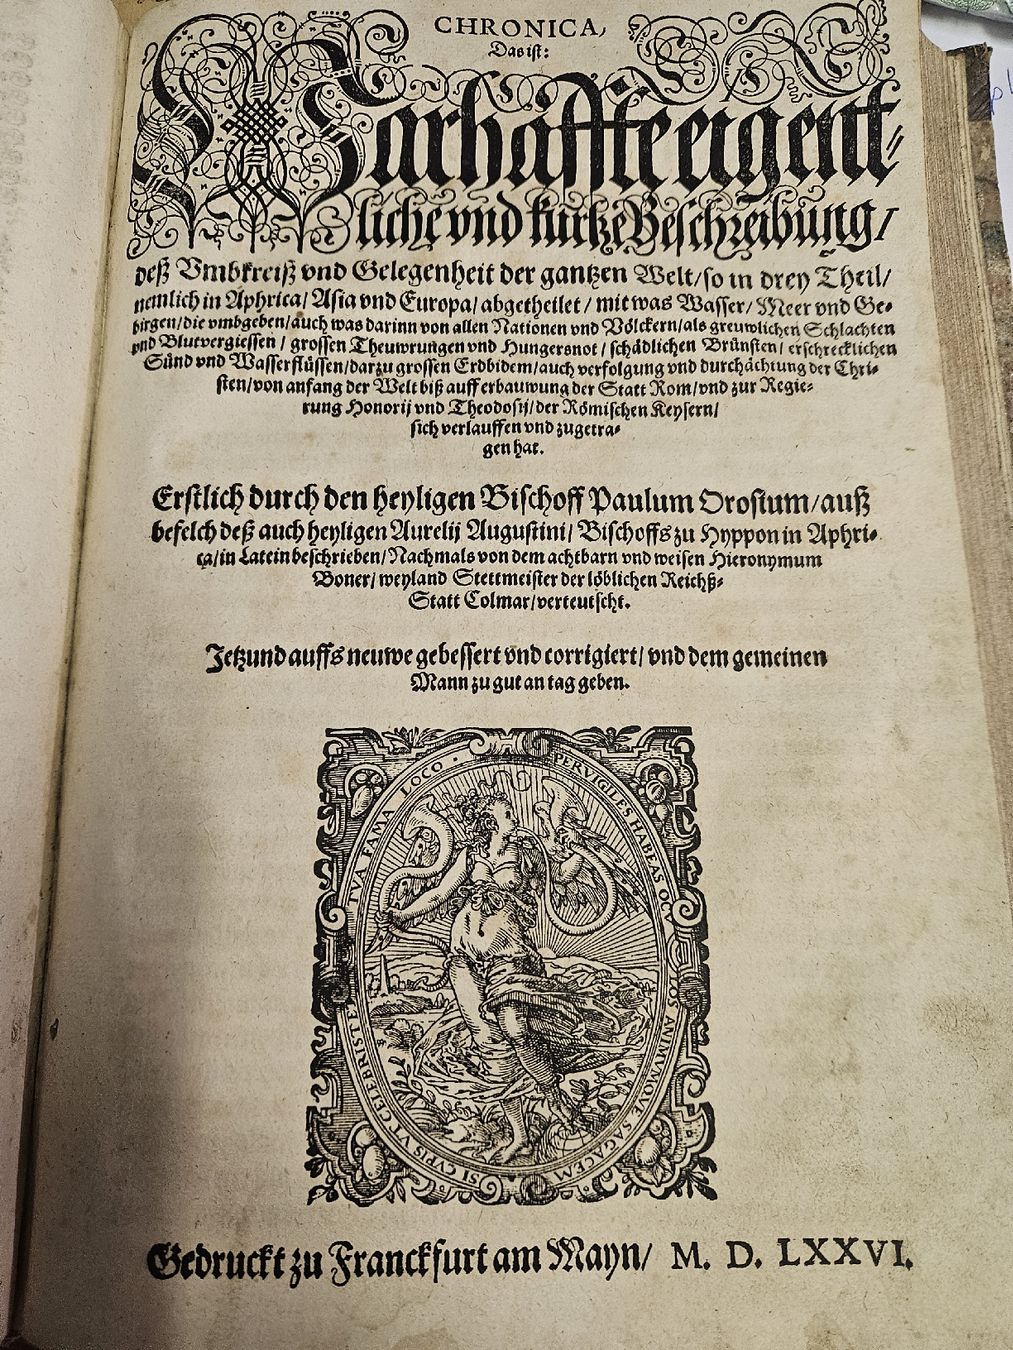 CHRONICA,
Das ist:
Warhaffte eigent⸗
liche vnd kurtze Beschreibung/
deß Vmbkreiß vnd Gelegenheit der gantzen Welt/ so in drey Theil/
nemlich in Aphrica/ Asia vnd Europa/ abgetheilet/ mit was Wasser/ Meer vnd Ge⸗
birgen/ die vmbgeben/ auch was darinn von allen Nationen vnd Völckern/ als greuwlichen Schlachten
vnd Blutvergiessen/ grossen Theuwrungen vnd Hungersnot/ schädlichen Brünsten/ erschrecklichen
Sünd vnd Wasserflüssen/ darzu grossen Erdbidem/ auch verfolgung vnd durchächtung der Chri⸗
sten/ von anfang der Welt biß auff erbauwung der Statt Rom/ vnd zur Regie⸗
rung Honorij vnd Theodosij/ der Römischen Keysern/
sich verlauffen vnd zugetra⸗
gen hat.
Erstlich durch den heyligen Bischoff Paulum Orosium/ auß
befelch deß auch heyligen Aurelij Augustini/ Bischoffs zu Hyppon in Aphri⸗
ca/ in Latein beschrieben/ Nachmals von dem achtbarn vnd weisen Hieronymum
Boner/ weyland Stettmeister der löblichen Reichß⸗
Statt Colmar/ verteutscht.
Jetzund auffs neuwe gebessert vnd corrigiert/ vnd dem gemeinen
Mann zu gut an tag geben.
SI CVPIS VT CELEBRI STET TVA FAMA LOCO · PERVIGILES HABEAS OCVLOS ANIMVMQVE SAGACEM
Gedruckt zu Franckfurt am Mayn/ M. D. LXXVI.